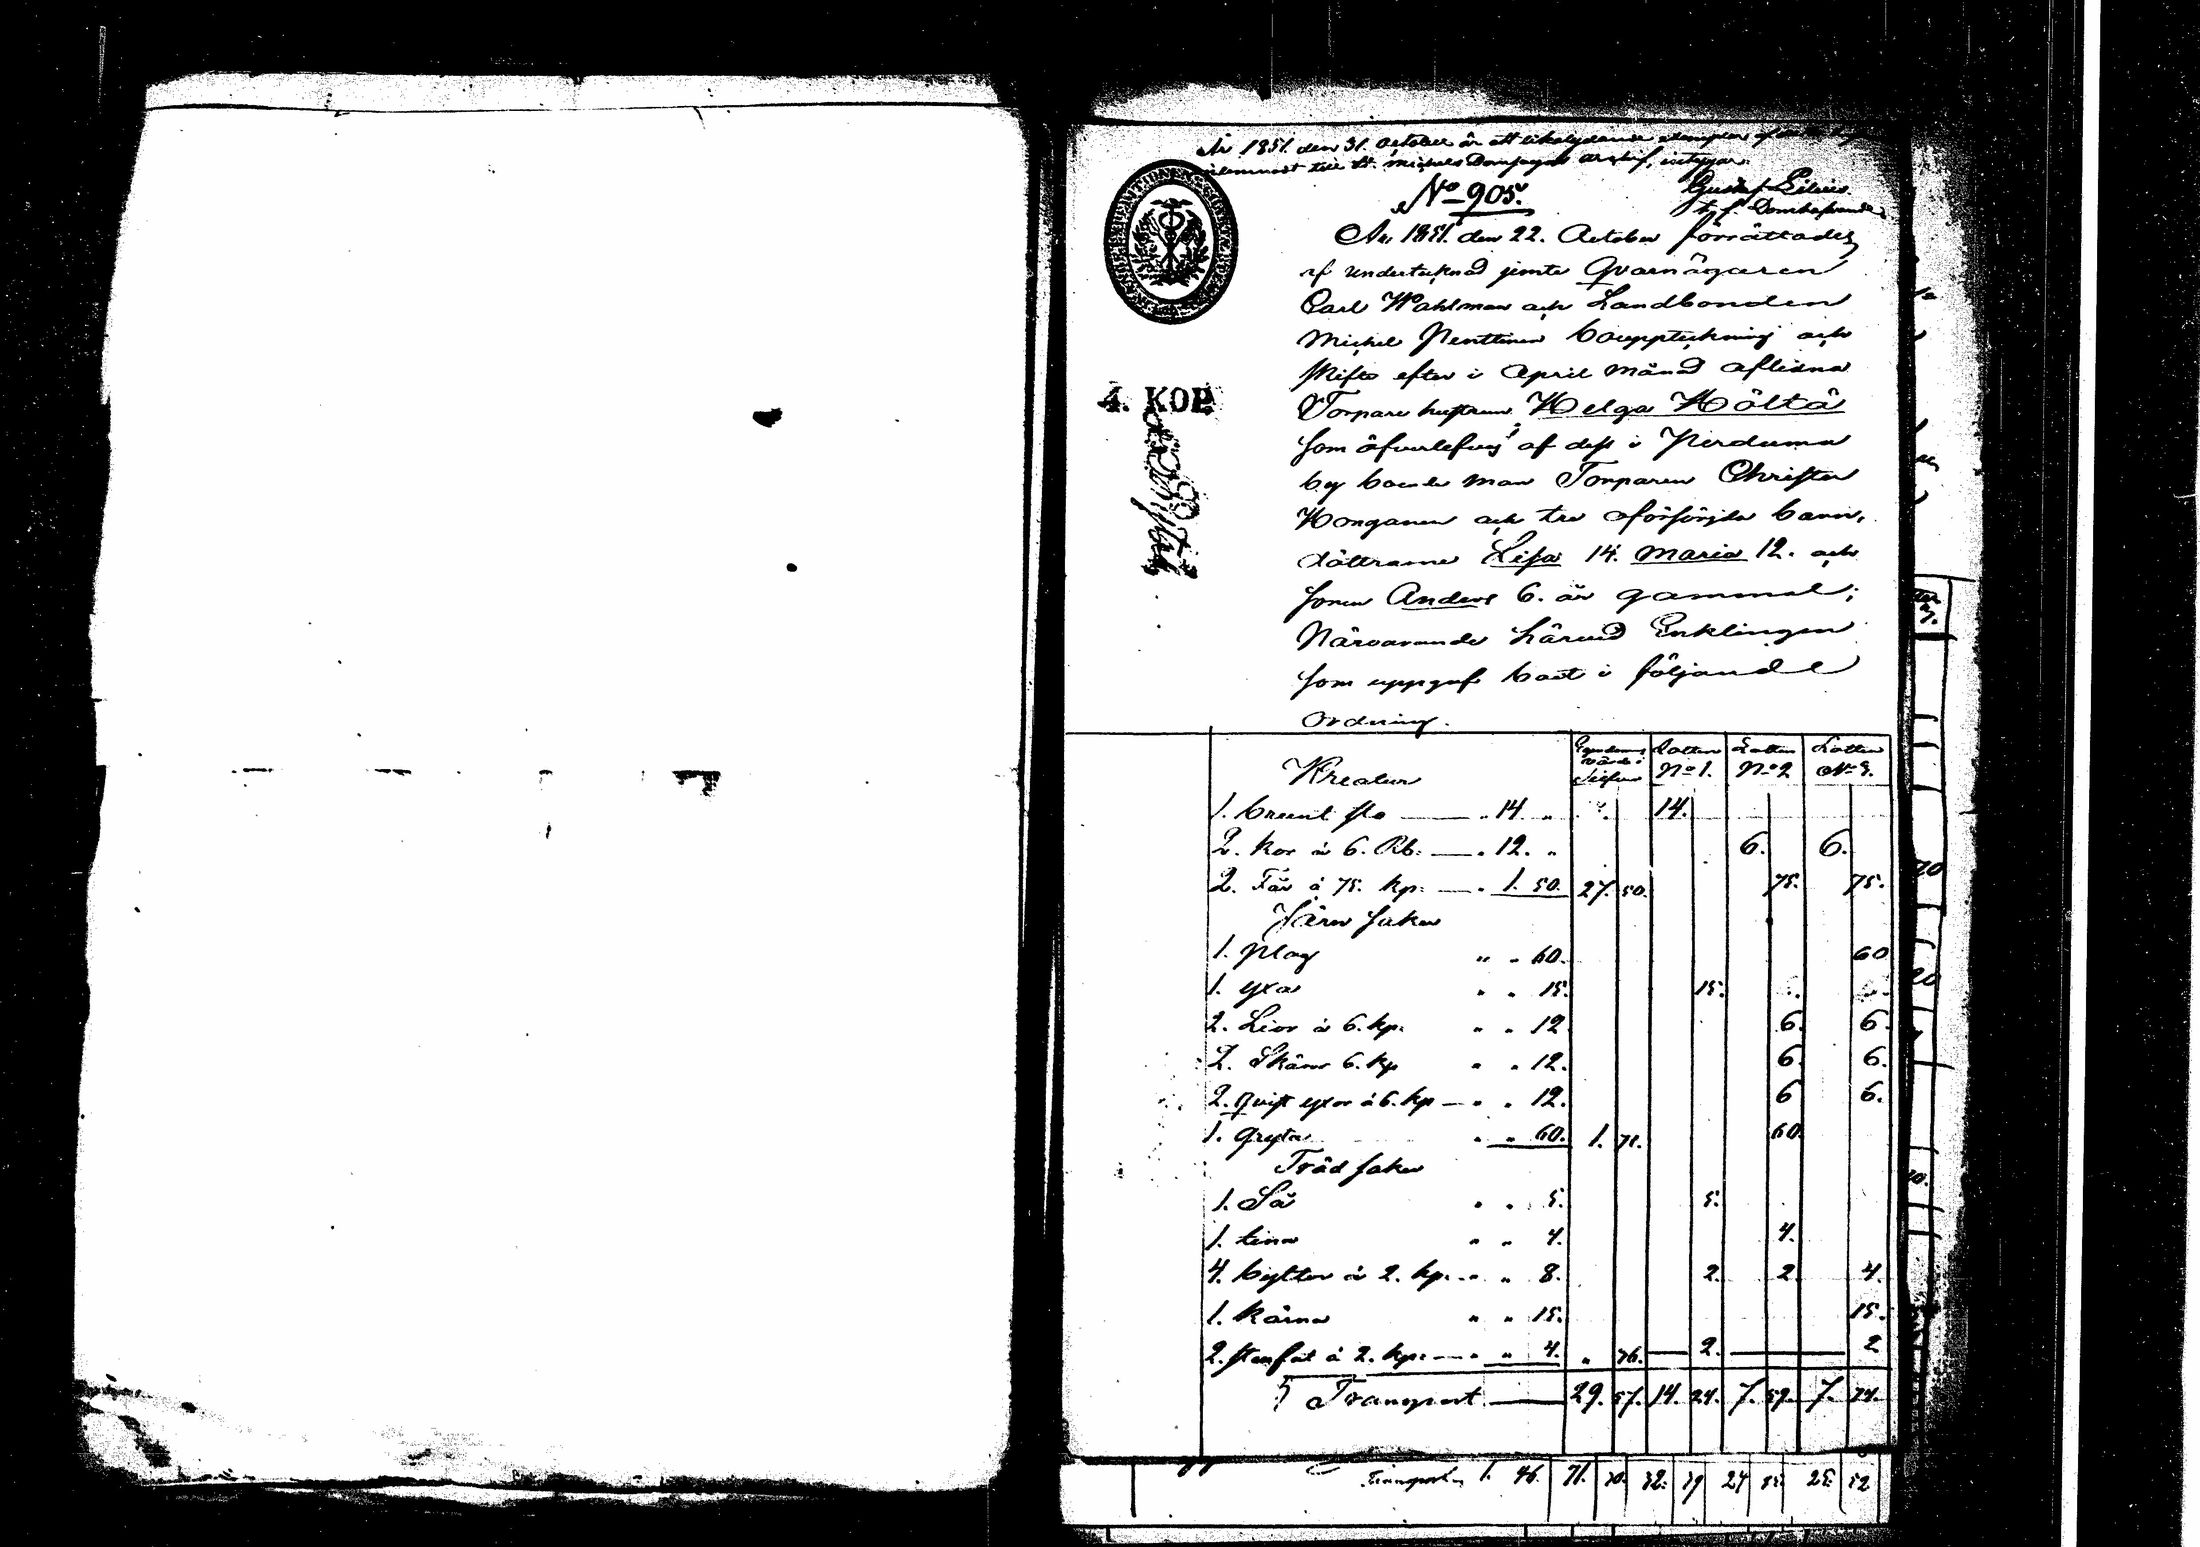 År 1851. den 31. October är ett likalydande exemplar af
inlemnadt till St. Michels Domsagas arkif, intygar.
Gustaf
t. f. Domhafvande
No 905.
År 1851. den 22. October förrättades
af undertecknad jemte Qvarnägaren
Carl Wahlman och Landbonden
Michel Penttinen bouppteckning och
skifte efter i April månad aflidna
Torpare hustrun Helga Hölttä
som öfverlefves af dess i Pirduma
by boende man Torparen Christer
Honganen och tre oförsörjda barn,
döttrarne Lisa 14. Maria 12. och
sonen Anders 6. år gammal;
Närvarande härvid Enklingen
som uppgaf boet i följande
ordning.
4. KOP.
Kreatur
Silfver Lotten No 1. Lotten No 2 Lotten No 3.
1. brunt sto " 14 " 14.
2. kor à 6. Rb. " 12. " 6. 6.
2. Får à 75. kp. " 1. 50. 27. 50. 75. 75.
Järn saker
1. Plog " " 60. 60
1. yxa " " 15. 15.
2. Liar à 6. kp. " " 12 6. 6.
2. Skäror 6. kp " " 12. 6. 6.
2. qvist yxor à 6. kp " " 12. 6 6.
1. Gryta " " 60. 1. 71. 60.
Träd saker
1. Så " " 5. 5.
1. tina " " 4. 4.
4. byttor à 2. kp. " " 8. 2. 2. 4.
1. kärna " " 15. 15.
2. stenfat à 2. kp. " " 4. " 36. 2. 2
Transport 29. 57. 14. 24. 7. 59. 7. 74.
Transport 1. 46. 71. 70. 32. 19 24 25. 52